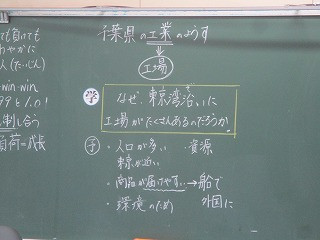 千葉県の工業のようす
工場
学 なぜ、東京湾沿いに
工場がたくさんあるのだろうか。
予 ・人口が多い ・資源
東京が近い
・商品が届けやすい→船で
外国に
・環境のため
ても負けても
やかに
win-win
99と1.0!
制し合う
負荷=成長